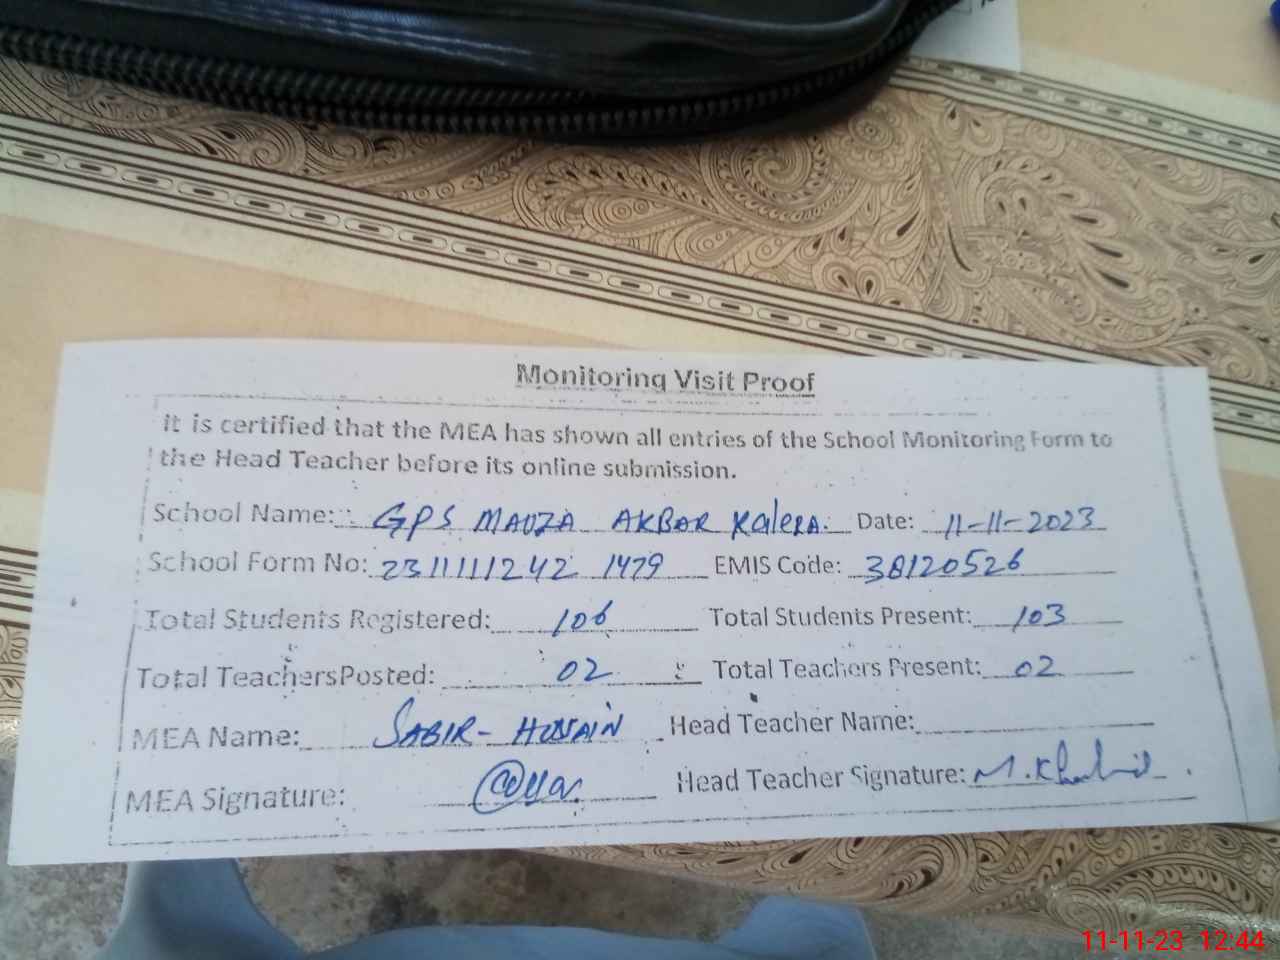 Monitoring Visit Proof
it is certified that the MEA has shown all entries of the School Monitoring Form to
the Head Teacher before its online submission.
School Name: GPS MAUZA AKBAR Kalera. Date: 11-11-2023
School Form No: 2311111242 1479 EMIS Code: 38120526
Total Students Registered: 106 Total Students Present: 103
Total TeachersPosted: 02 Total Teachers Present: 02
MEA Name: SABIR- HUSSAIN Head Teacher Name:
MEA Signature: Head Teacher Signature: M.
11-11-23 12:44